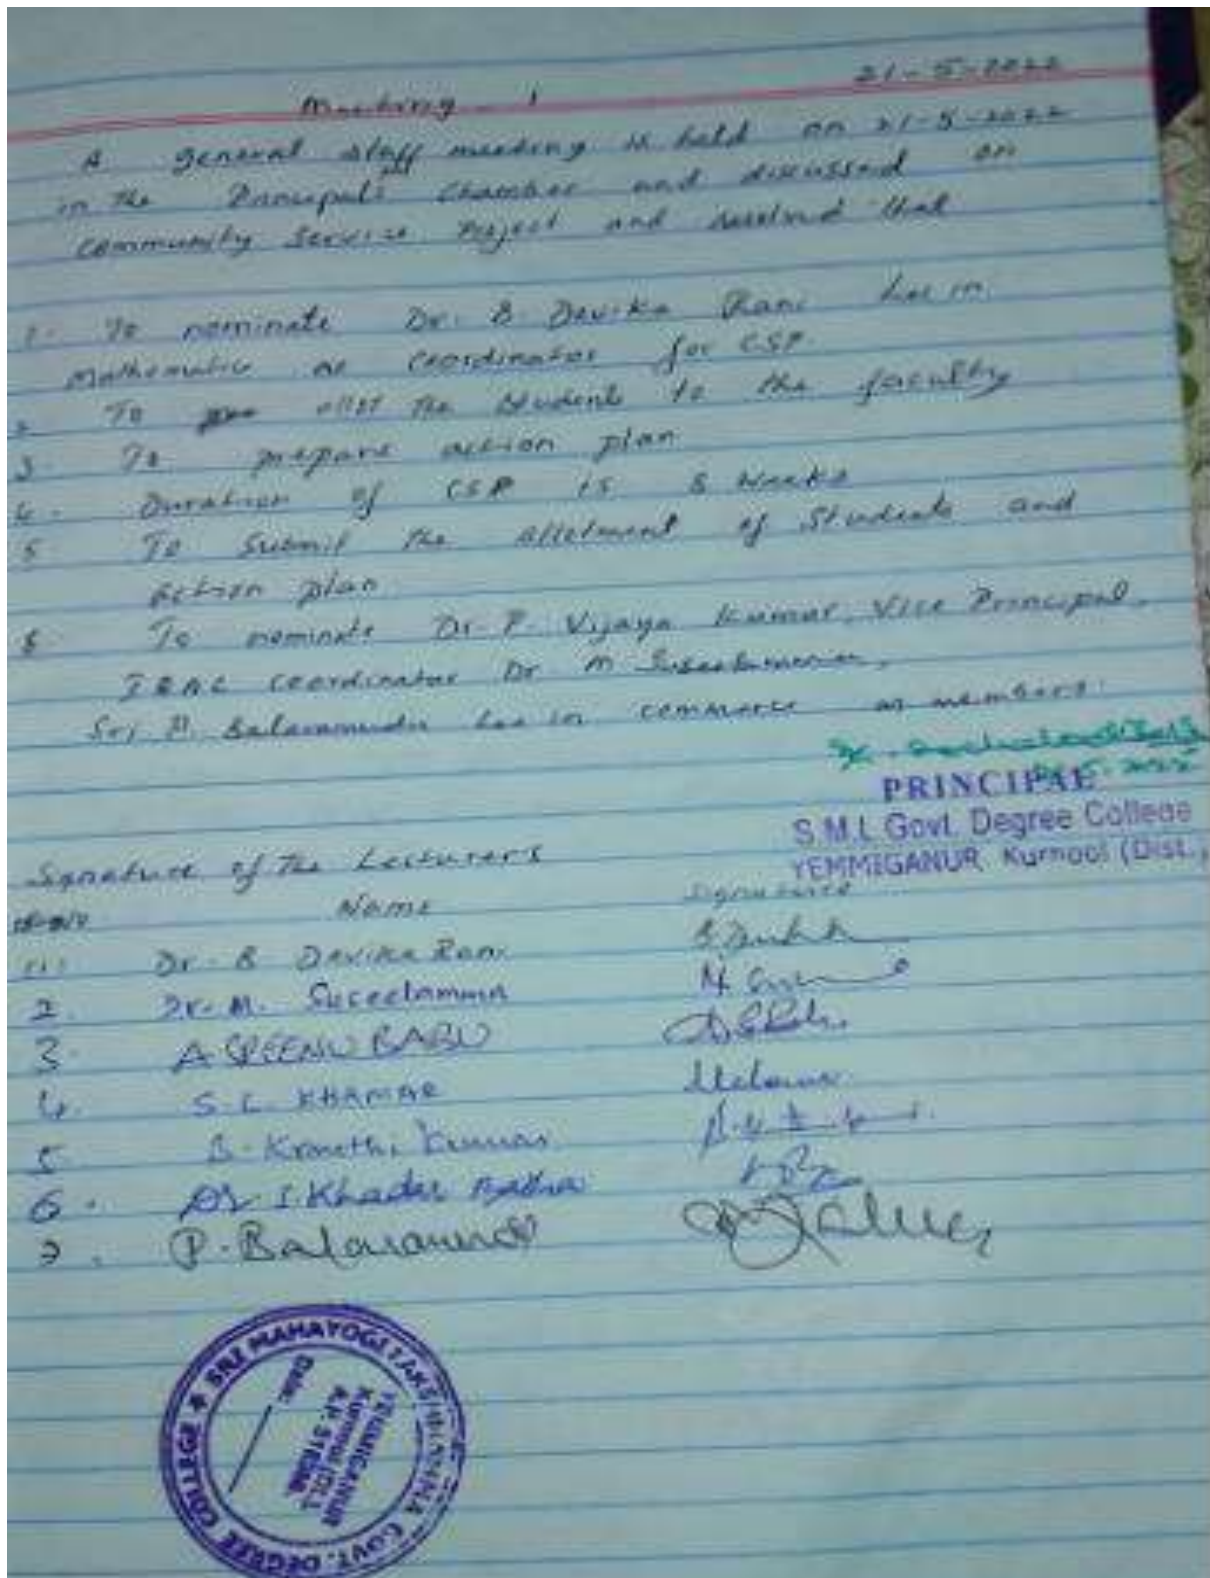 21-5-2022
Meeting - 1
A general staff meeting is held on 21-5-2022
in the Principals Chamber and discussed on
community Service Project and resolved that
1. To nominate Dr. B. Devika Rani Lec in
Mathematics as Coordinator for CSP.
2 To allot the students to the faculty
3. To prepare action plan
4. Duration of CSP is 8 weeks
5 To submit the allotment of Students and
Action plan
6 To nominate Dr. P. Vijaya Kumar, Vice Principal,
IQAC Coordinator Dr M Suseelamma,
Sri P. Balaramudu Lec in commerce as members.
PRINCIPAL
S.M.L Govt. Degree College
YEMMIGANUR, Kurnool (Dist.,
Signature of The Lecturers
Name Signature
1. Dr. B Devika Rani
2. Dr. M. Suseelamma
3. A SREENU BABU
4. S. L. KHAMAR
5 B. Kranthi Kumar
6. Dr S. Khadar Basha
7. P. Balaramudu
SRI MAHAYOGI LAKSHMAMMA GOVT. DEGREE COLLEGE
YEMMIGANUR
Kurnool (Dt.)
Date: